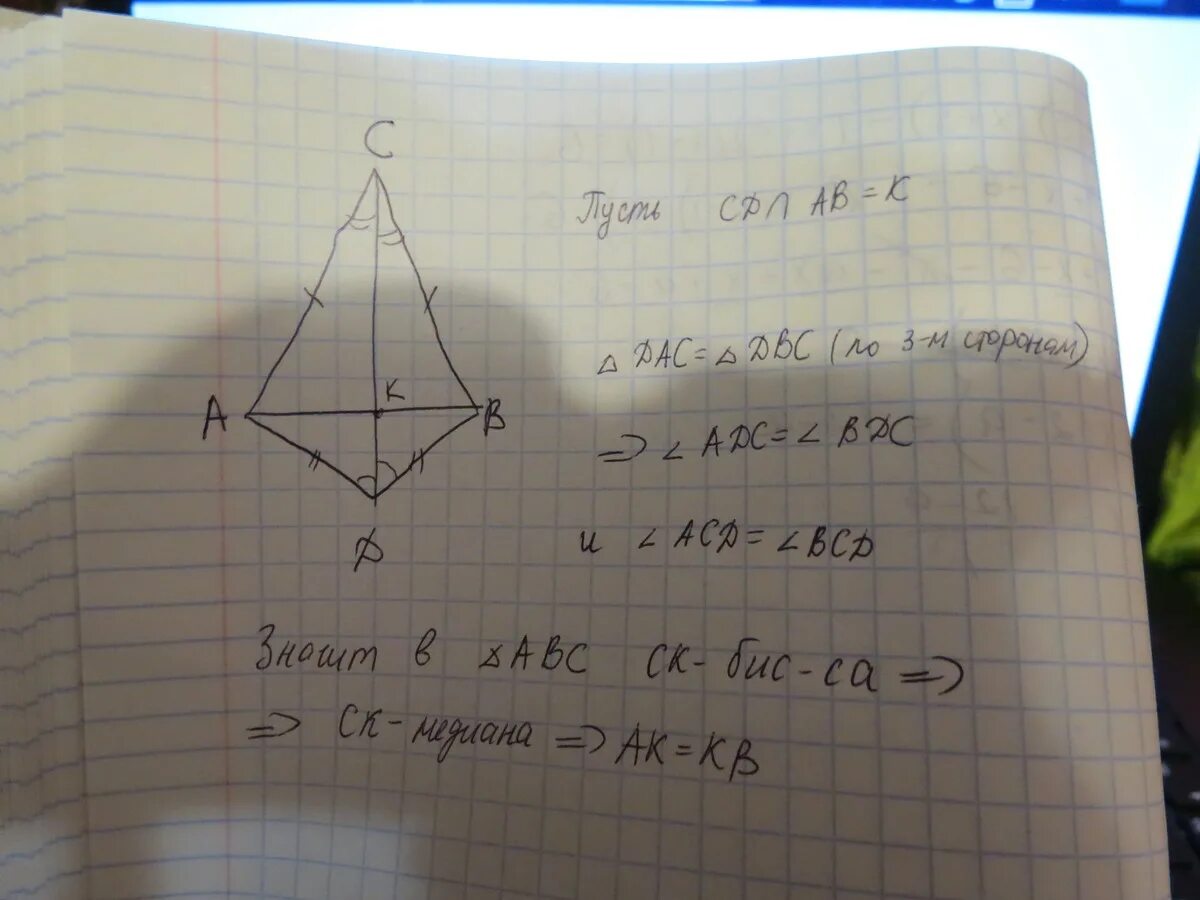 C
Пусть CD∩ AB = K
△ DAC = △ DBC (по 3-м сторонам)
K
A
B
=> ∠ ADC = ∠ BDC
D
и ∠ ACD = ∠ BCD
Значит в △ABC CK- бис-са =>
=> CK- медиана => AK = KB